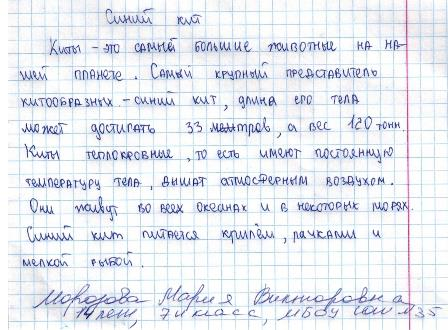 Синий кит
Киты – это самые большие животные на на-
шей планете. Самый крупный представитель
китообразных – синий кит, длина его тела
может достигать 33 метров, а вес 120 тонн.
Киты теплокровные, то есть имеют постоянную
температуру тела, дышат атмосферным воздухом.
Они живут во всех океанах и в некоторых морях.
Синий кит питается крилем, рачками и
мелкой рыбой.
Морозова Мария Викторовна
14 лет, 7 и класс, МБОУ СОШ №35